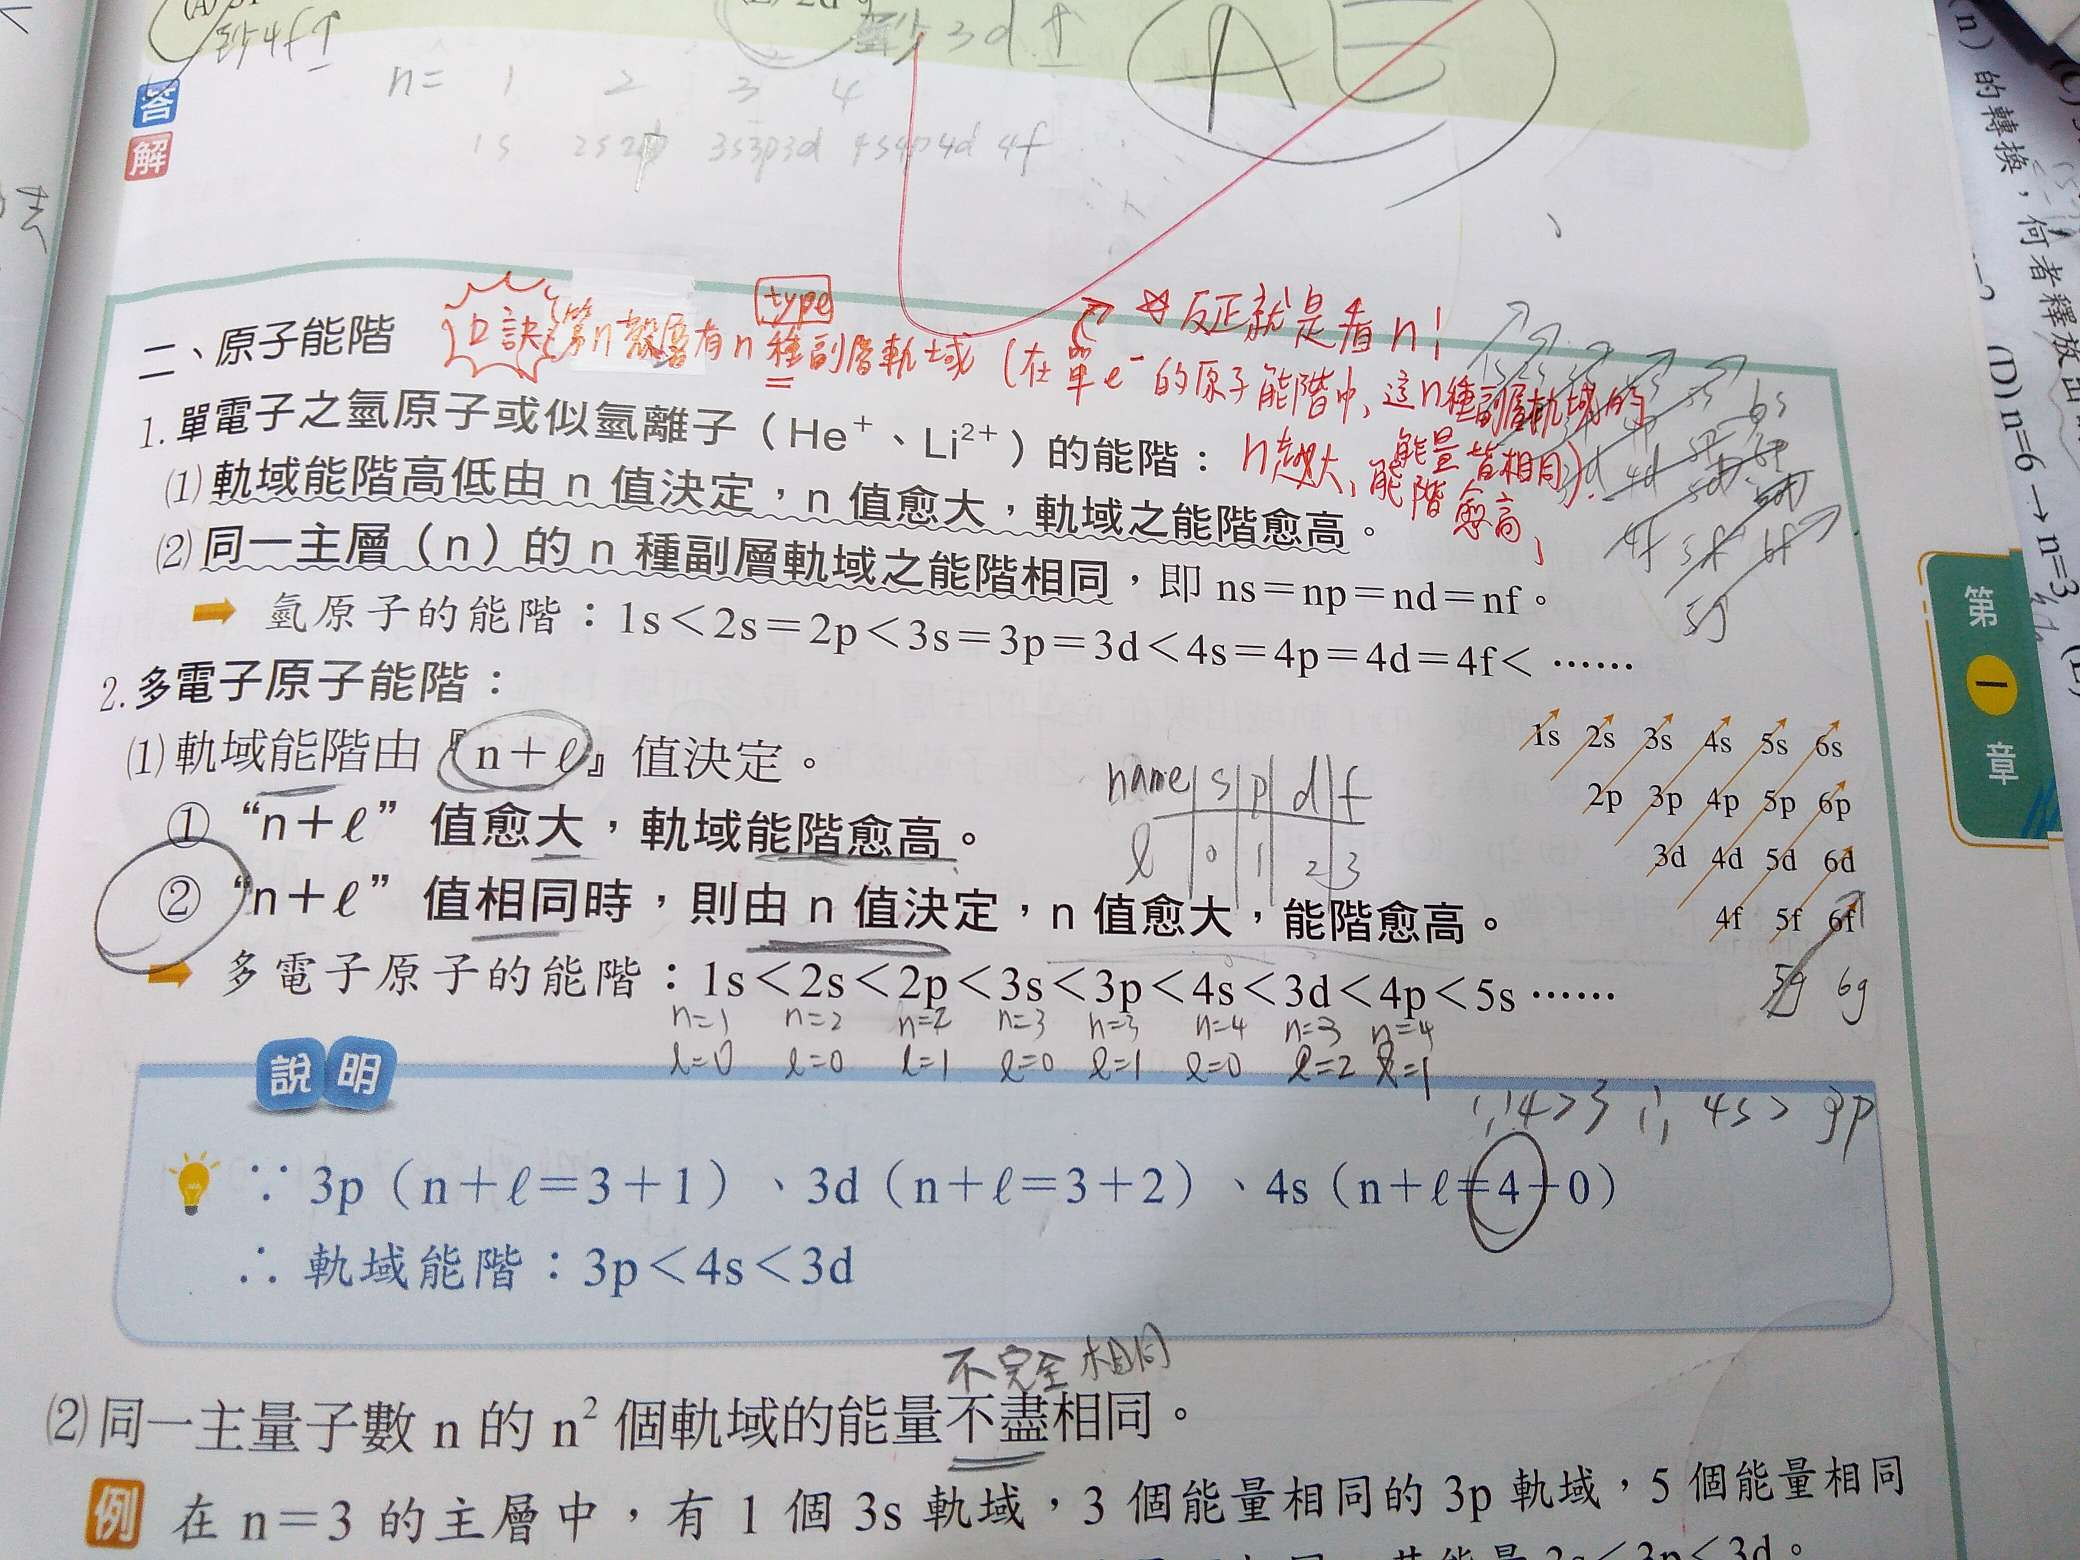 至少4f↑
最少3d↑
AE
答
n= 1 2 3 4
解
1s 2s2p 3s3p3d 4s4p4d 4f
type
口訣 第n殼層有n種副層軌域(在單e⁻的原子能階中、這n種副層軌域的
能量皆相同).
☆反正就是看n!
n越大,能階愈高,
二、原子能階
1.單電子之氫原子或似氫離子(He⁺、Li²⁺)的能階:
⑴軌域能階高低由 n 值決定,n 值愈大,軌域之能階愈高。
⑵同一主層(n)的 n 種副層軌域之能階相同,即 ns=np=nd=nf。
➡ 氫原子的能階:1s<2s=2p<3s=3p=3d<4s=4p=4d=4f< ……
6s
4f 5f 6f
5g
2.多電子原子能階:
⑴軌域能階由『n+ℓ』值決定。
① “n+ℓ” 值愈大,軌域能階愈高。
② “n+ℓ” 值相同時,則由 n 值決定,n 值愈大,能階愈高。
name s p d f
ℓ 0 1 2 3
1s 2s 3s 4s 5s 6s
2p 3p 4p 5p 6p
3d 4d 5d 6d
4f 5f 6f
5g 6g
➡ 多電子原子的能階:1s<2s<2p<3s<3p<4s<3d<4p<5s ……
n=1 n=2 n=2 n=3 n=3 n=4 n=3 n=4
ℓ=0 ℓ=0 ℓ=1 ℓ=0 ℓ=1 ℓ=0 ℓ=2 ℓ=1
說明
∵4>3 ∴ 4s> 3p
∵ 3p(n+ℓ=3+1)、3d(n+ℓ=3+2)、4s(n+ℓ=4+0)
∴ 軌域能階:3p<4s<3d
不完全相同
⑵同一主量子數 n 的 n² 個軌域的能量不盡相同。
例 在 n=3 的主層中,有 1 個 3s 軌域,3 個能量相同的 3p 軌域,5 個能量相同
其能量 3s<3p<3d。
第一章
(n)的轉換,何者釋放出
(D) n=6→n=3